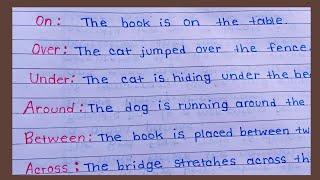 On: The book is on the table.
Over: The cat jumped over the fence.
Under: The cat is hiding under the be
Around: The dog is running around the
Between: The book is placed between tw
Across: The bridge stretches across th